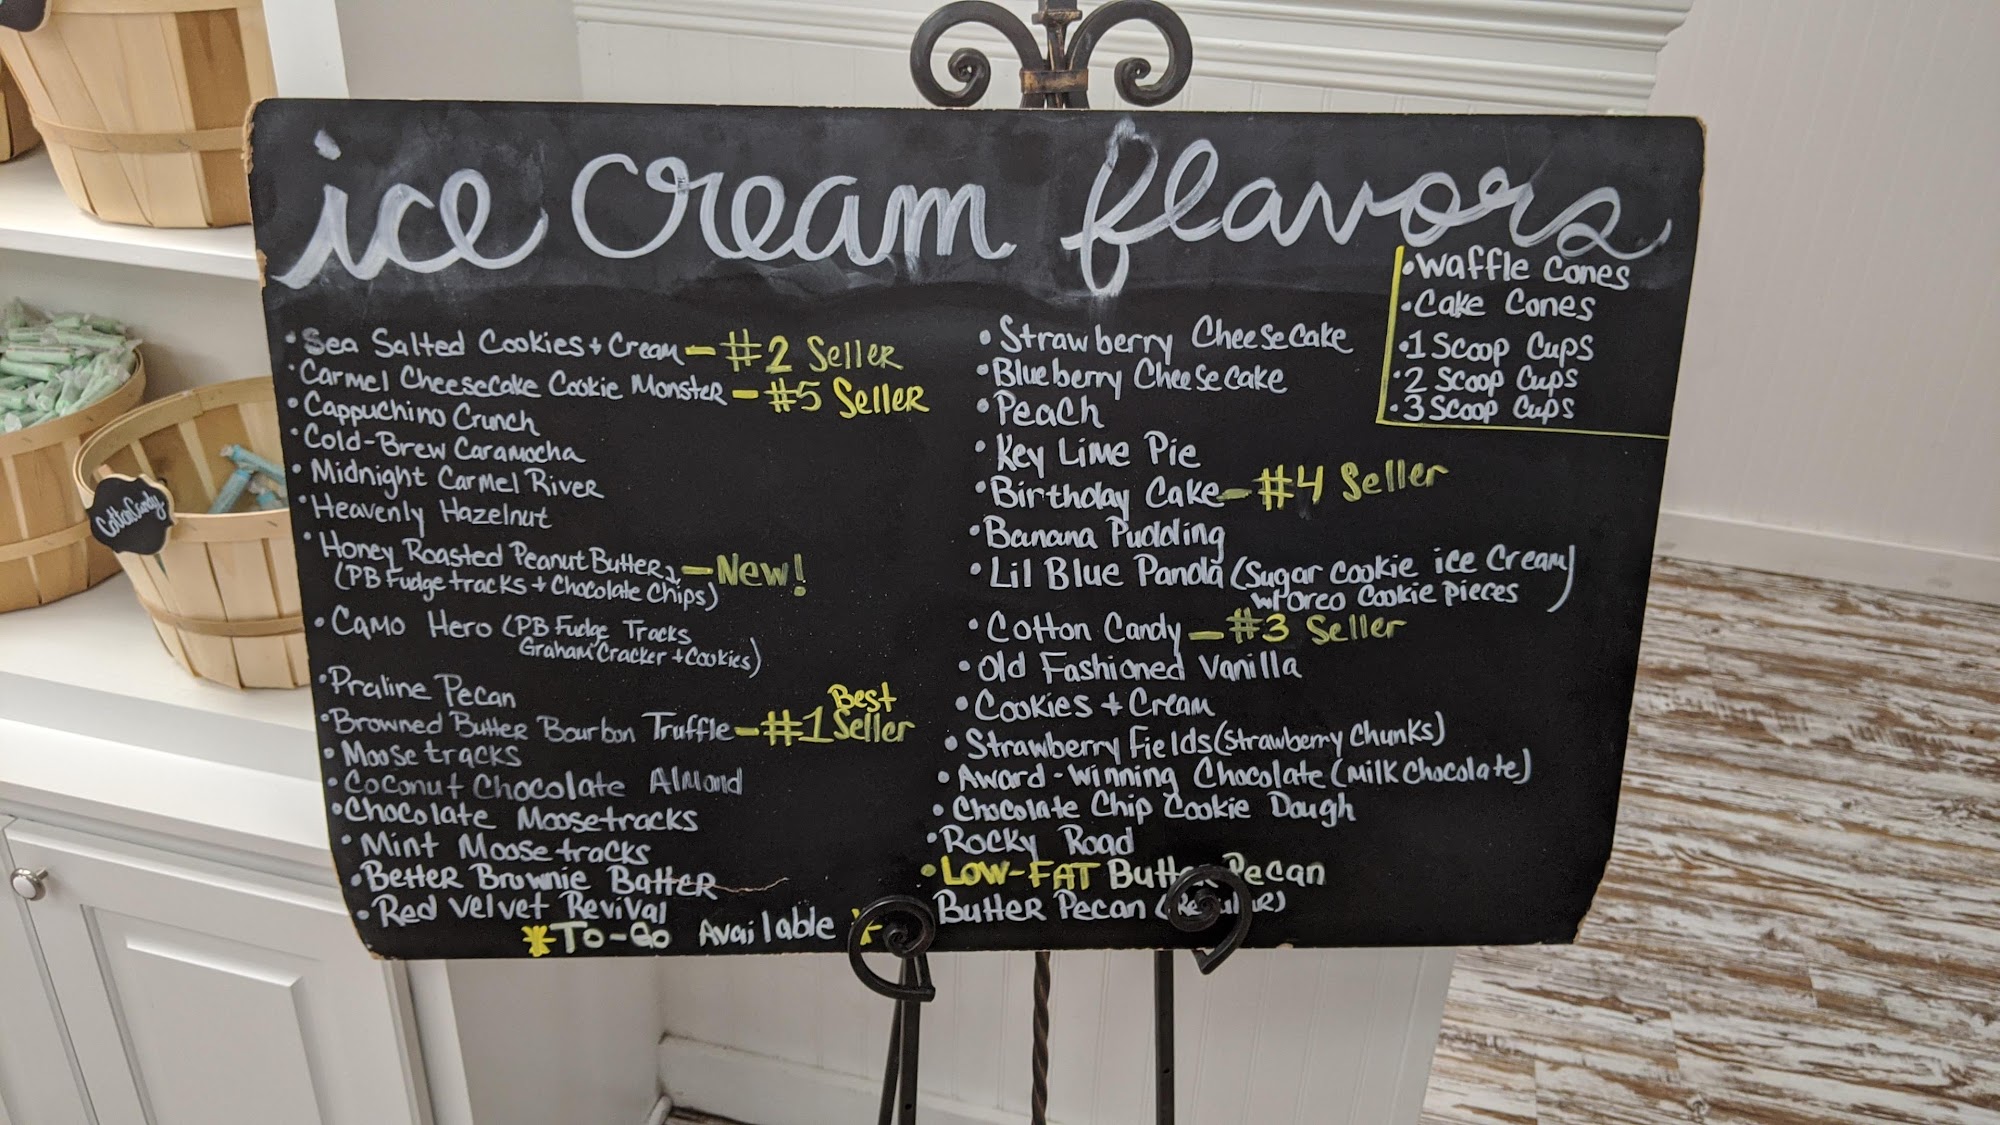 ice cream flavors
• Sea Salted Cookies + Cream – #2 Seller
• Carmel Cheesecake Cookie Monster – #5 Seller
• Cappuchino Crunch
• Cold-Brew Caramocha
• Midnight Carmel River
• Heavenly Hazelnut
• Honey Roasted Peanut Butter – New!
(PB Fudge tracks + Chocolate Chips)
• Camo Hero (PB Fudge Tracks
Graham Cracker + Cookies)
• Praline Pecan
• Browned Butter Bourbon Truffle – #1 Best Seller
• Moosetracks
• Coconut Chocolate Almond
• Chocolate Moosetracks
• Mint Moosetracks
• Better Brownie Batter
• Red Velvet Revival
*To-Go Available *
• Strawberry Cheesecake
• Blueberry Cheesecake
• Peach
• Key Lime Pie
• Birthday Cake – #4 Seller
• Banana Pudding
• Lil Blue Panda (Sugar cookie ice cream)
w/ Oreo Cookie Pieces
• Cotton Candy – #3 Seller
• Old Fashioned Vanilla
• Cookies + Cream
• Strawberry Fields (Strawberry Chunks)
• Award-winning Chocolate (Milk Chocolate)
• Chocolate Chip Cookie Dough
• Rocky Road
• Low-FAT Butter Pecan
Butter Pecan (Regular)
• Waffle Cones
• Cake Cones
• 1 Scoop Cups
• 2 Scoop Cups
• 3 Scoop Cups
Cotton Candy